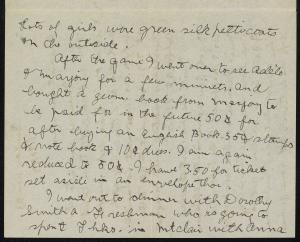 Lots of girls wore green silk petticoats
on the outside.
After the game I went over to see Adele
& Marjory for a few minuets. and
bought a geom. book from Marjory to
be paid for in the future 50¢
after buying an English Book 35¢ stamps
& note book & 10¢ dues. I am again
reduced to 50¢. I have 3.50 for ticket
set aside in an envelope tho.
I went out to dinner with Dorothy
Smith a Freshman who is going to
spent Thks. in Mtclair with Anna